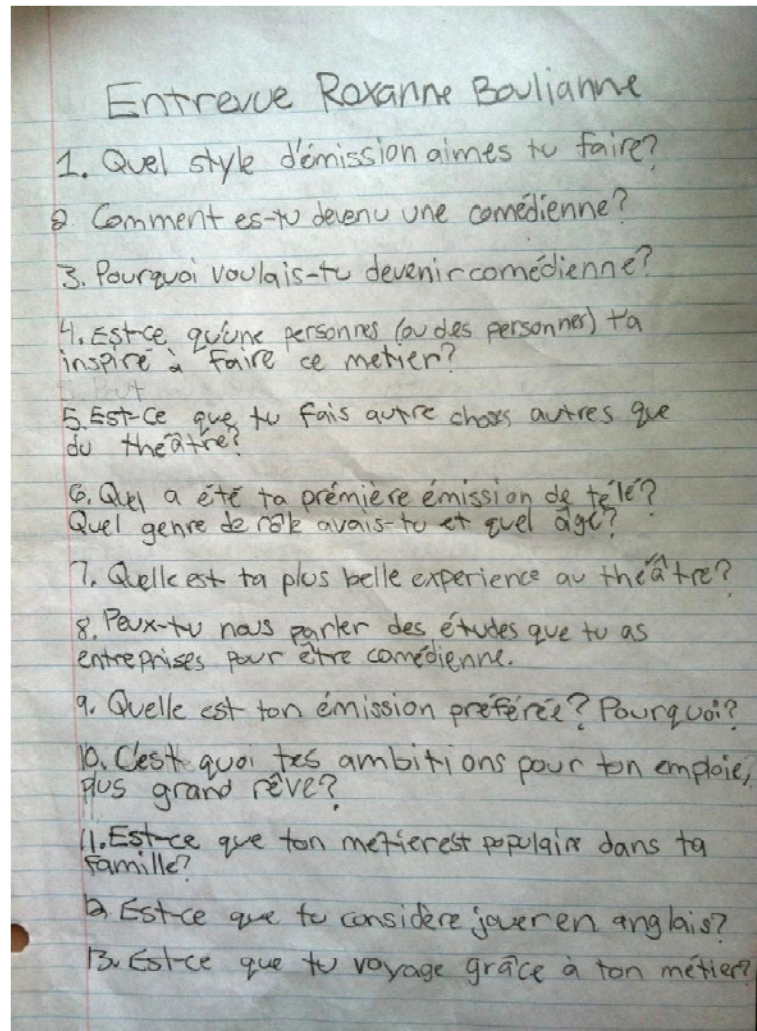 Entrevue Roxanne Boulianne
1. Quel style d'émission aimes tu faire?
2. Comment es-tu devenu une comédienne?
3. Pourquoi voulais-tu devenir comédienne?
4. Est-ce qu'une personnes (ou des personnes) t'a
inspiré à faire ce metier?
5. Est-ce que tu fais autre choses autres que
du théâtre?
6. Quel a été ta prémière émission de télé?
Quel genre de rôle avais-tu et quel âge?
7. Quelle est ta plus belle experience au théâtre?
8. Peux-tu nous parler des études que tu as
entreprises pour être comédienne.
9. Quelle est ton émission préférée? Pourquoi?
10. C'est quoi tes ambitions pour ton emploie,
plus grand rêve?
11. Est-ce que ton metier est populaire dans ta
famille?
12. Est-ce que tu considère jouer en anglais?
13. Est-ce que tu voyage grâce à ton métier?